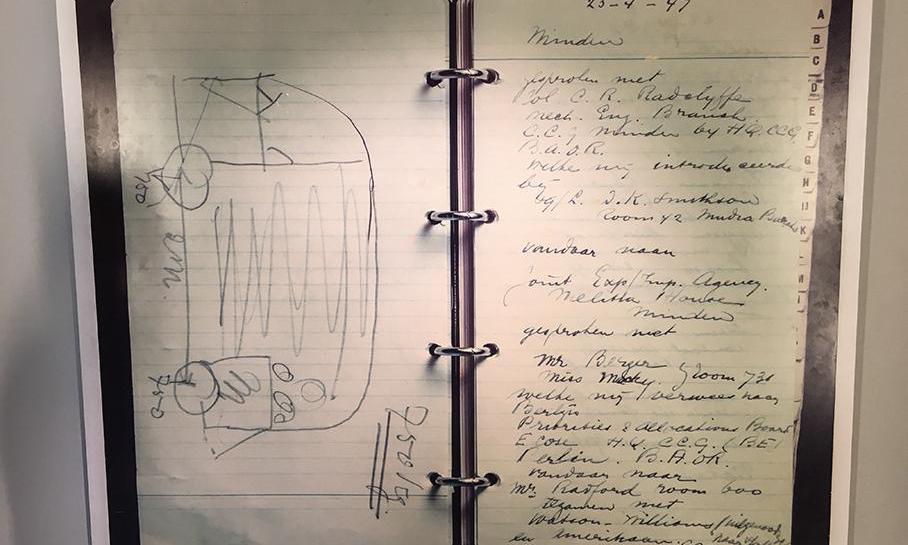 750
750
750 kg
23-4-47
Minden
gesproken met
Col C. R. Radclyffe
Mech. Eng. Branch
C.C.G Minden by HQ. CCG
B.A.O.R.
Welke mij introduceerde
by
Room 42
vandaar naar
Joint Exp/Imp. Agency.
Melitta House
Minden
gesproken met
Mr Berger room 731
Miss
welke mij verwees naar
Berlijn
Priorities & Allocations Board
H.Q. C.C.G. (BE)
Berlin. B.A.O.R.
vandaar naar
Mr. Radford room 600
tezamen met
Watson-Williams
en Amerikaan
A
B
C
D
E
F
G
H
IJ
K
L
M